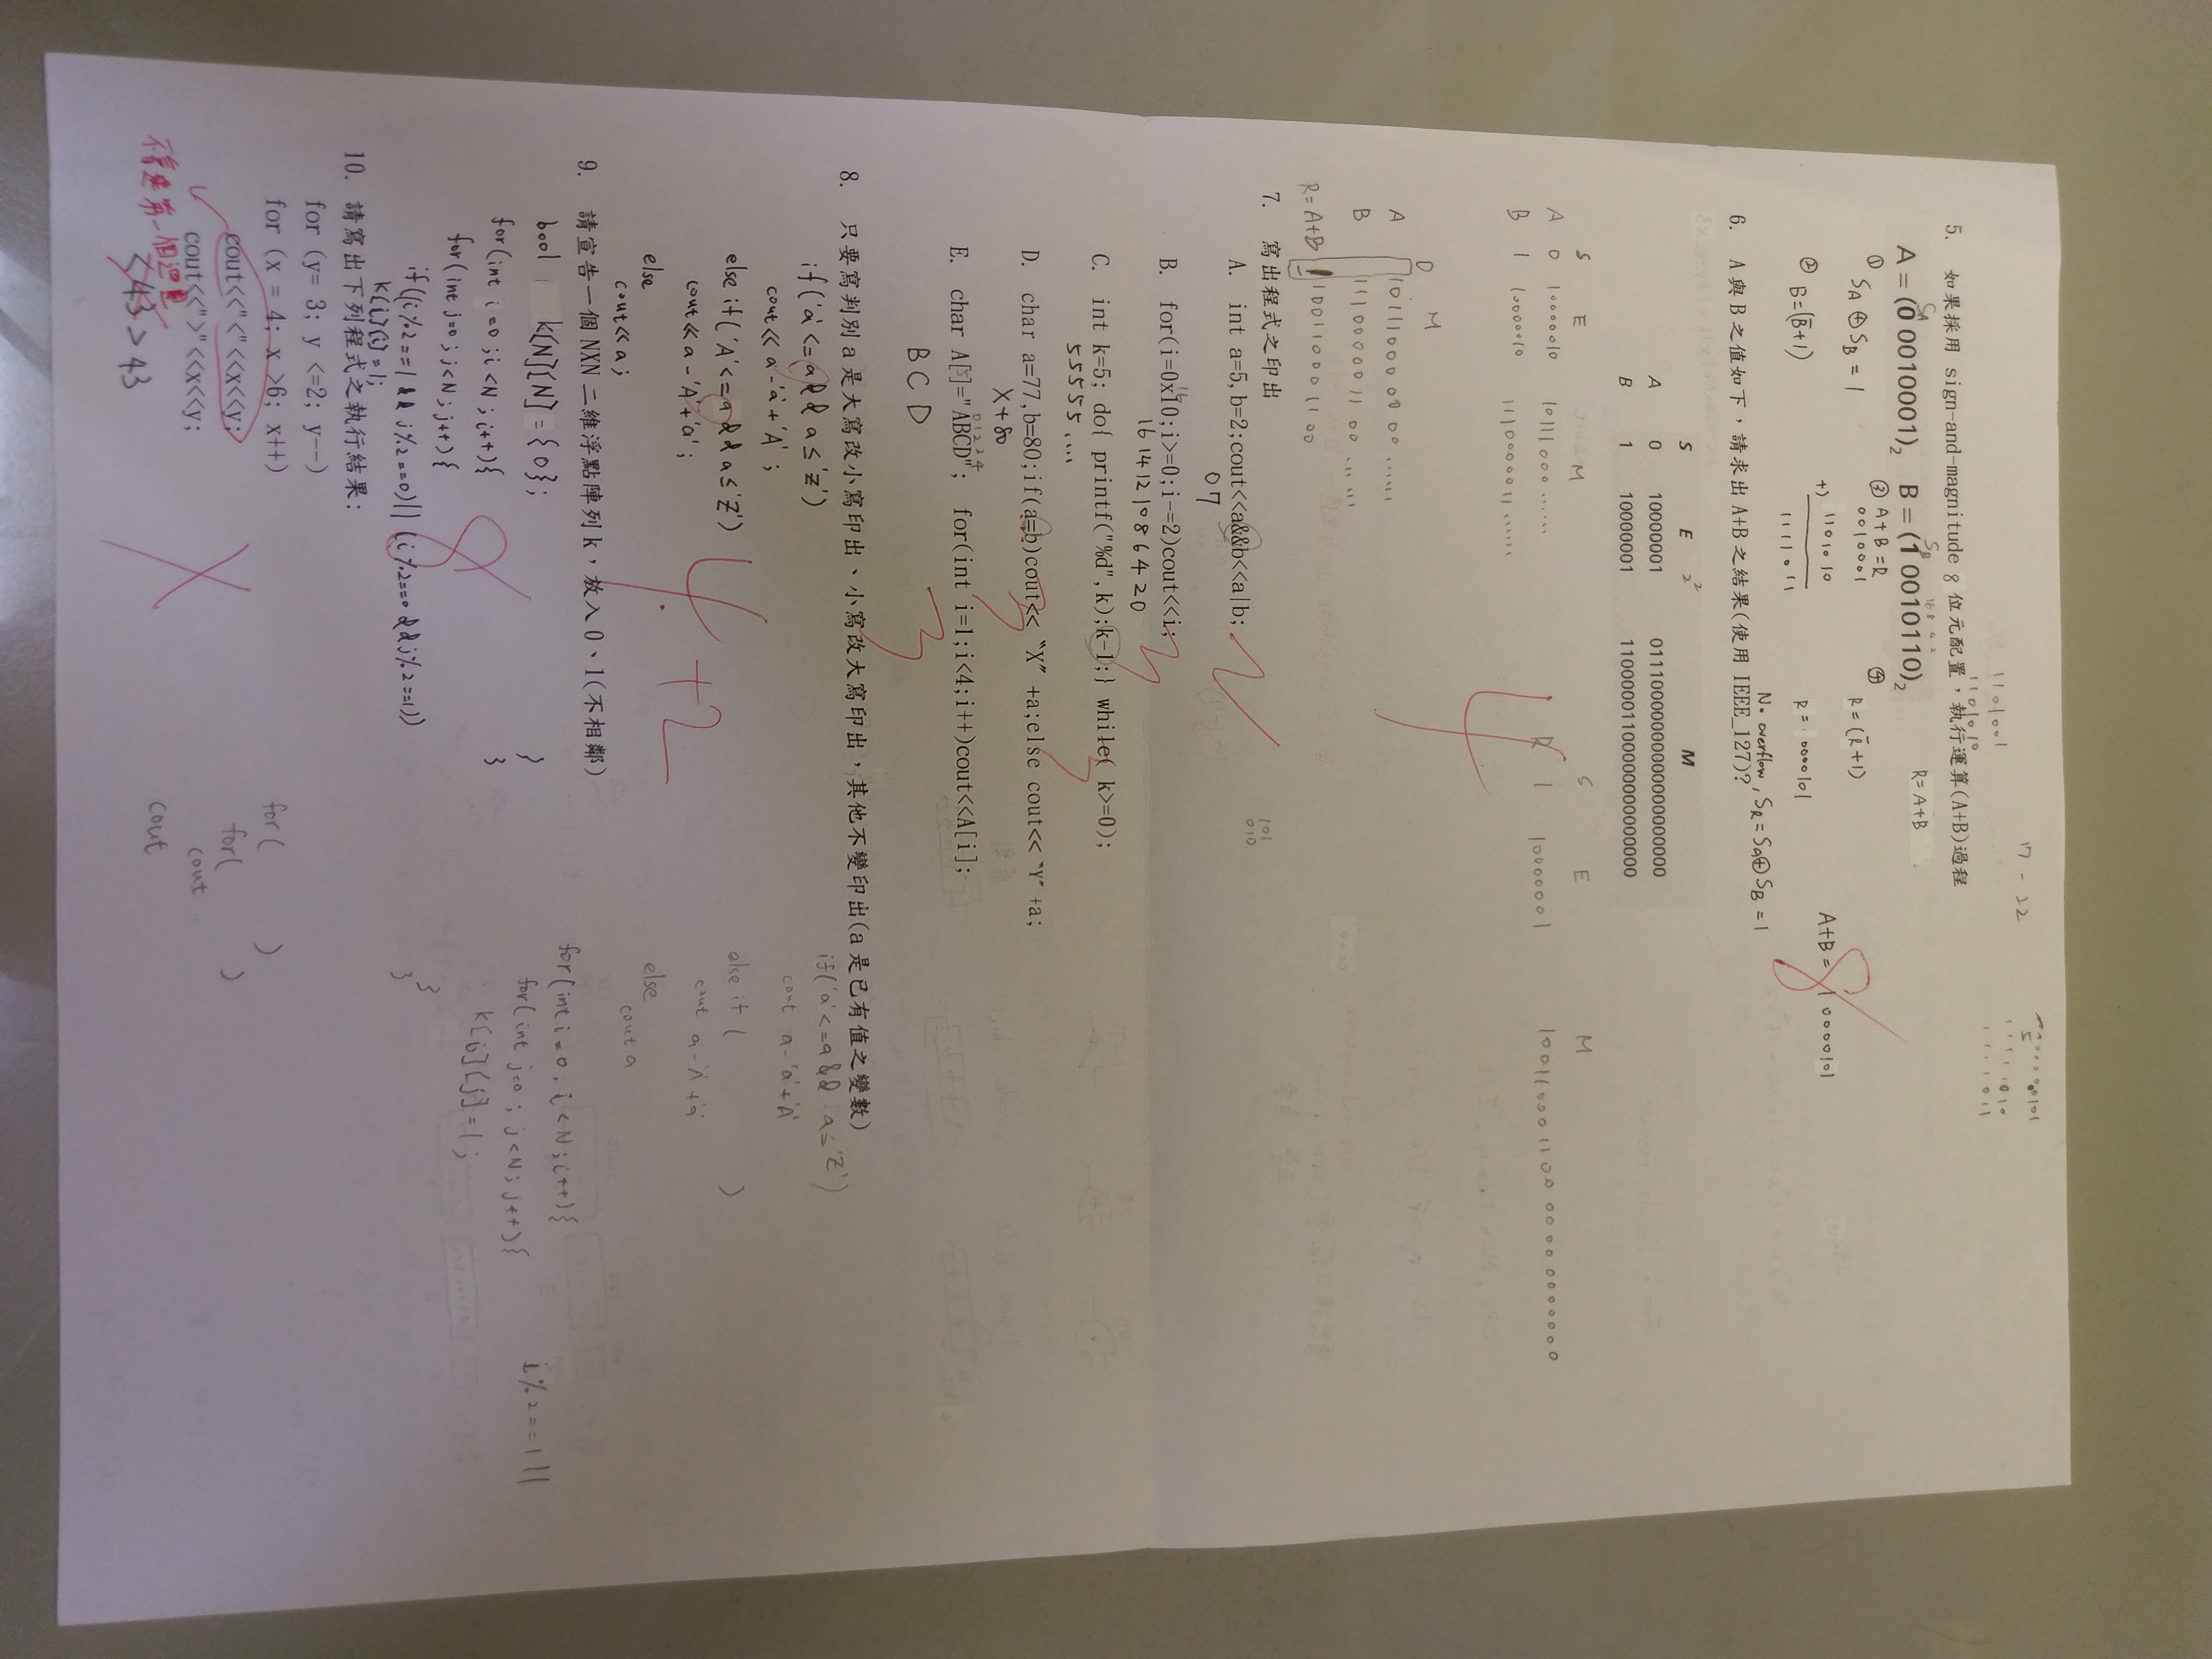 17 - 22
00000101
5
11111010
1111011
1101001
1101010
5. 如果採用 sign-and-magnitude 8 位元配置，執行運算(A+B)過程
SA SB 16 8 4 2
A = (0 0010001)2 B = (1 0010110)2 R=A+B
① SA ⊕ SB = 1
② B=(B̄+1)
③ A+B=R
0010001
+) 1101010
1111011
④ R=(R̄+1)
R= 0000101
A+B= 1 0000101
8
No overflow, SR=SA⊕SB=1
6. A 與 B 之值如下，請求出 A+B 之結果(使用 IEEE_127)?
S E 2² M
A 0 10000001 01110000000000000000000
B 1 10000001 11000001100000000000000
S E M
A 0 10000010 10111000......
B 1 10000010 1110000011......
S E M
R 1 10000001 10011000011000000000000
4
O M
A 101110000000......
B 111000001100......
R=A+B 1 100110001100
7. 寫出程式之印出
101
010
A. int a=5,b=2;cout<<a&&b<<a|b;
07
2
16
B. for(i=0x10;i>=0;i-=2)cout<<i;
1614121086420
3
C. int k=5; do{ printf("%d",k);k-1;} while( k>=0);
55555....
3
D. char a=77,b=80;if(a=b)cout<< "X" +a;else cout<< "Y" +a;
X+80
3
01234
E. char A[5]="ABCD"; for(int i=1;i<4;i++)cout<<A[i];
BCD
3
8. 只要寫判別 a 是大寫改小寫印出、小寫改大寫印出，其他不變印出(a 是已有值之變數)
if('a'<=a&& a≤'z')
cout<< a-'a'+'A' ;
else if('A'<=a&& a≤'Z')
cout<< a-'A'+'a' ;
else
cout<<a;
4 +2
if('a'<=a&& a≤'Z')
cout a-'a'+'A'
else if ( )
cout a-'A'+'a'
else
cout a
9. 請宣告一個 NXN 二維浮點陣列 k，放入 0、1(不相鄰)
bool k[N][N]={0};
for(int i=0;i<N;i++){
for(int j=0;j<N;j++){
if((i%2==1 && j%2==0)||(i%2==0&&j%2==1))
k[i][i]=1;
}
}
8
for(int i=0. i<N;i++){
for(int j=0;j<N;j++){
k[i][j]=1;
}
}
i%2==1||
10. 請寫出下列程式之執行結果:
for (y= 3; y <=2; y--)
for (x = 4; x >6; x++)
cout<<"<"<<x<<y;
cout<<">"<<x<<y;
不會進第一個迴圈
<43>43
for( )
for( )
cout
cout